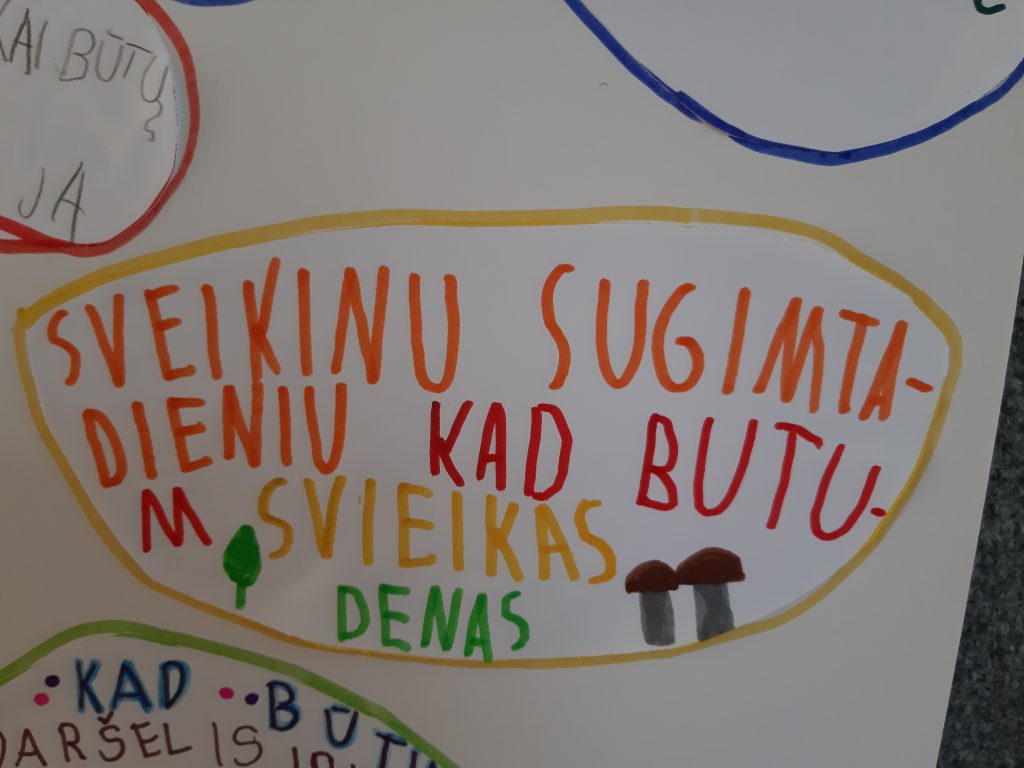 KAI BŪTŲ
JA
SVEIKINU SUGIMTA-
DIENIU KAD BUTU-
M SVIEIKAS
DENAS
KAD BŪTŲ
DARŠELIS